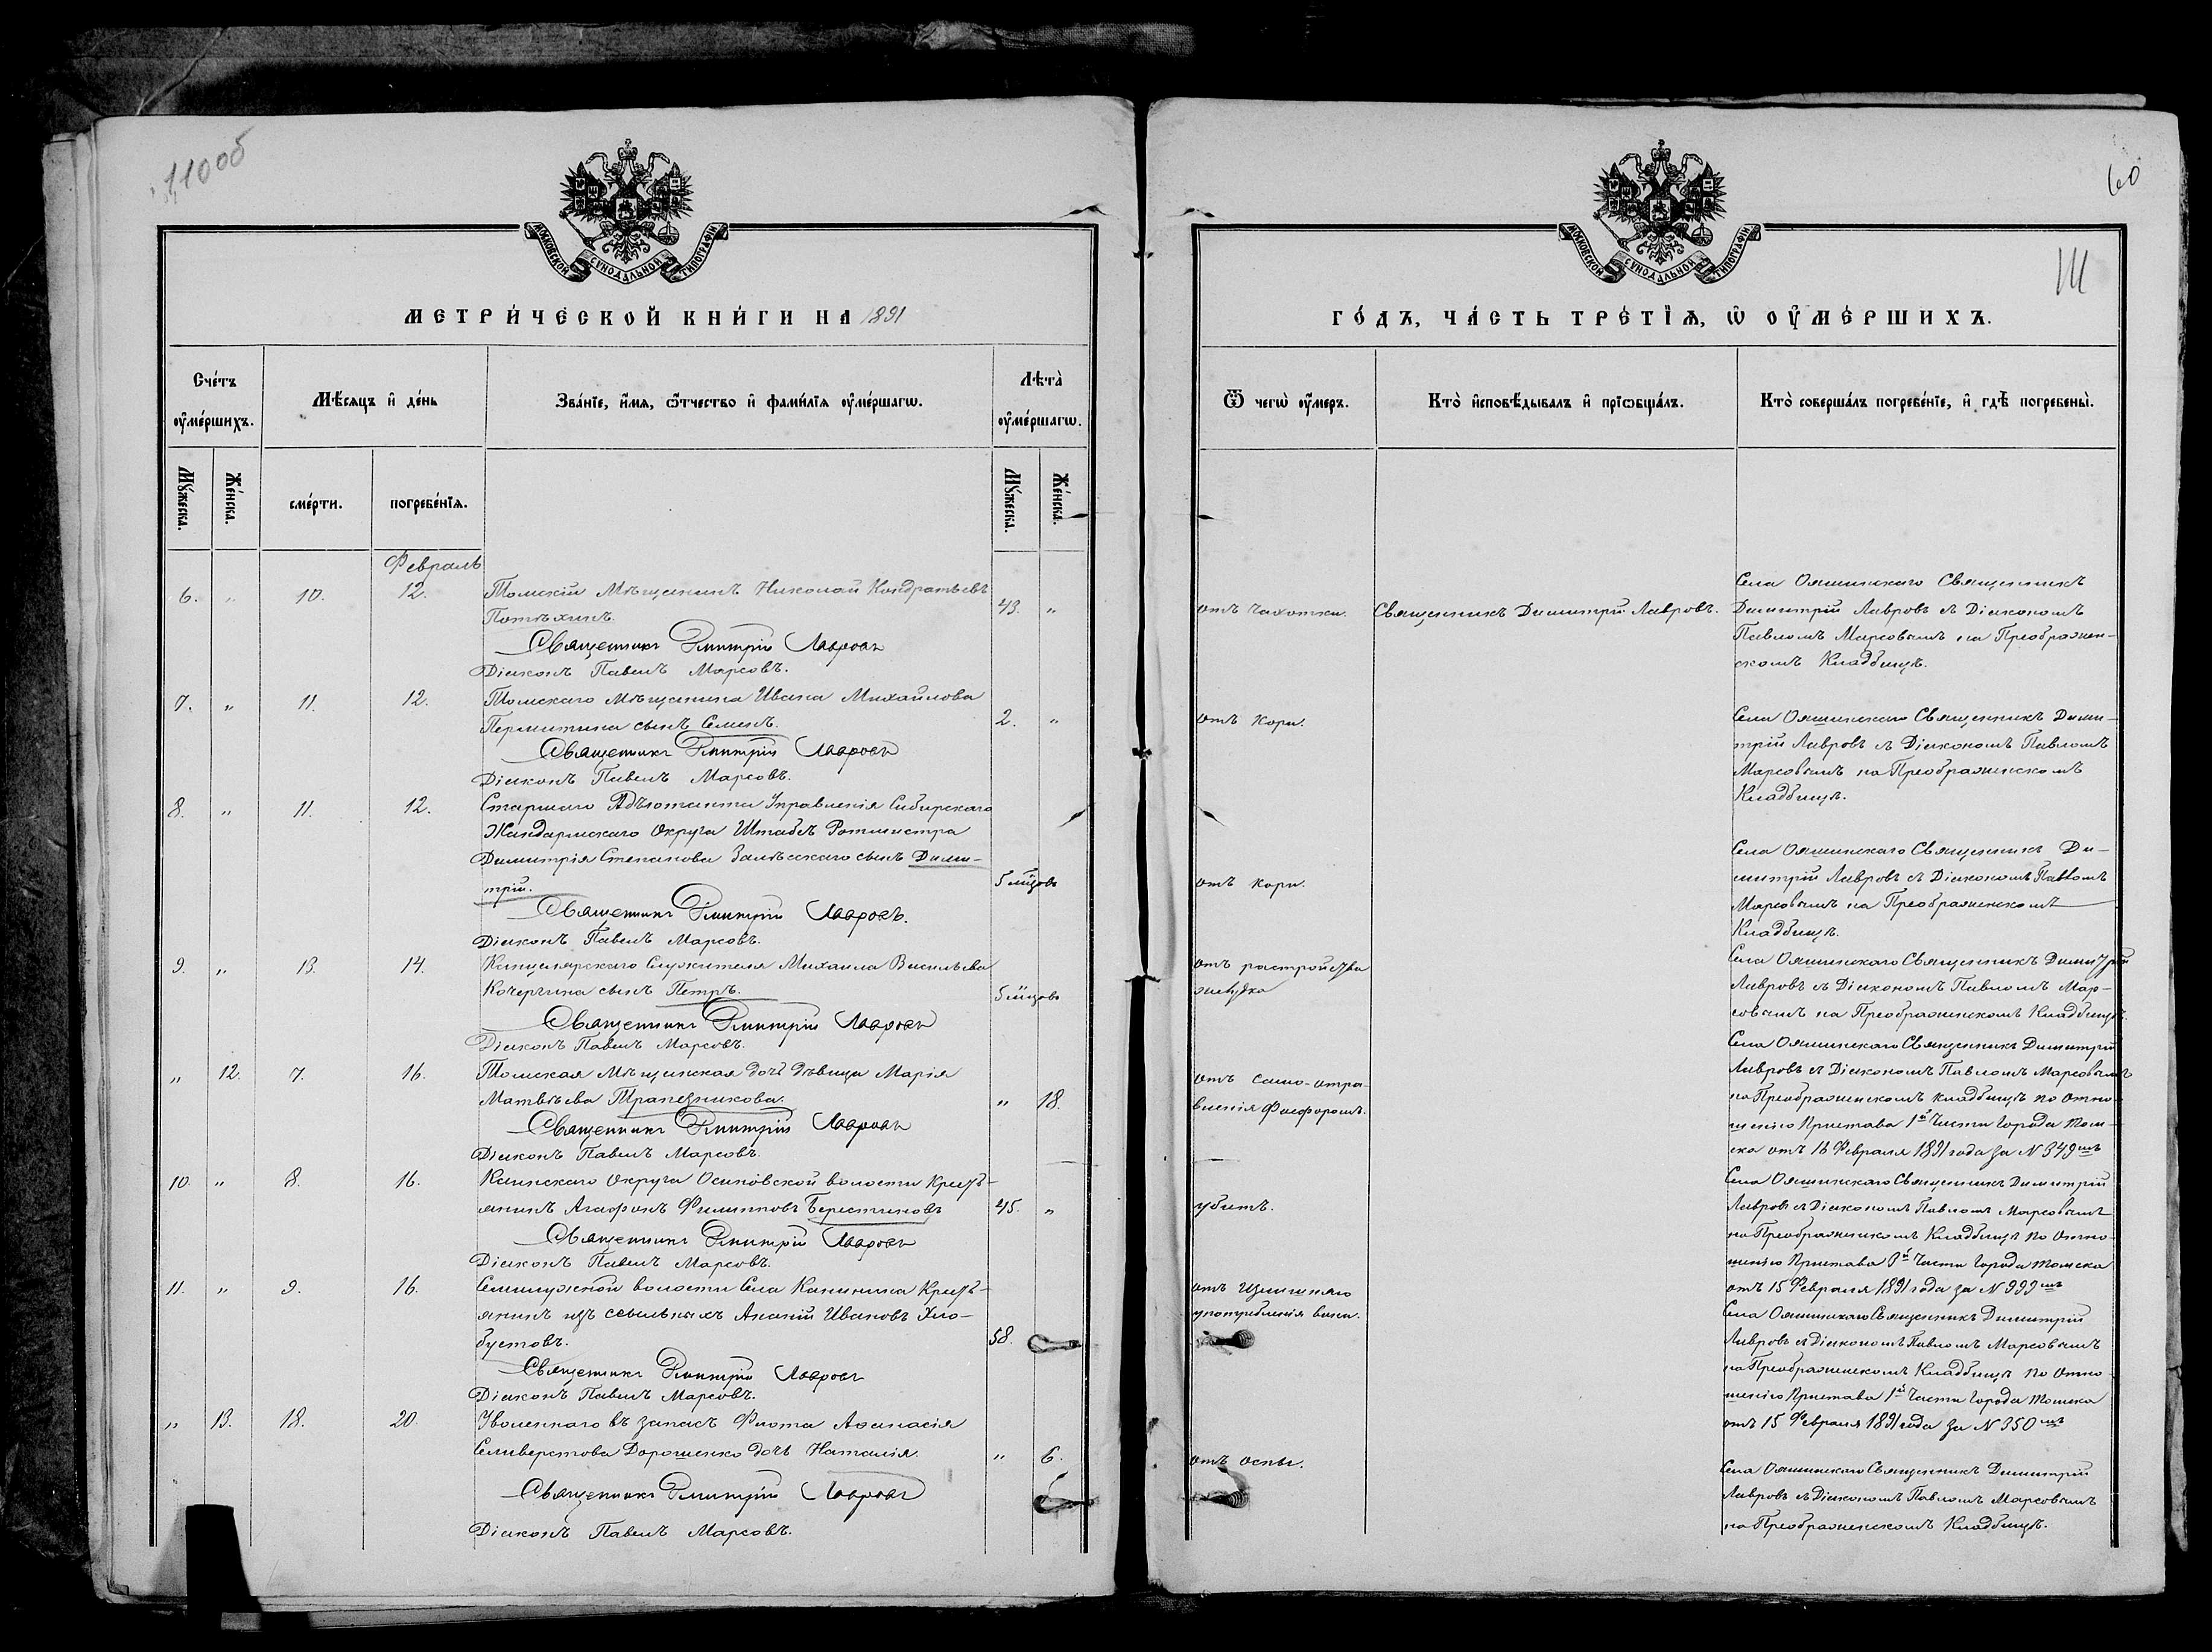 110об
МОСКОВСКОЙ СУНОДАЛЬНОЙ ТИПОГРАФІИ
МЕТРИЧЕСКОЙ КНИГИ НА 1891
Счетъ оумершихъ.
Мѣсяцъ и день
Званіе, имя, отчество и фамилія оумершагѡ.
Лѣта оумершагѡ.
Мужеска.
Женска.
смерти.
погребенія.
Мужеска.
Женска.
Февраль
6. " 10. 12. Томскій Мѣщанинъ Николай Кондратьевъ
Потѣхинъ. 43. "
Священникъ Димитрій Лавровъ
Діаконъ Павелъ Марсовъ.
7. " 11. 12. Томскаго Мѣщанина Ивана Михайлова
Пермитина сынъ Семенъ. 2. "
Священникъ Димитрій Лавровъ
Діаконъ Павелъ Марсовъ.
8. " 11. 12. Старшаго Адъютанта Управленія Сибирскаго
Жандармскаго Округа Штабсъ Ротмистра
Димитрія Степанова Залѣсскаго сынъ Дими-
трій. 5 мѣцовъ
Священникъ Димитрій Лавровъ.
Діаконъ Павелъ Марсовъ.
9. " 13. 14. Канцелярскаго Служителя Михаила Васильева
Кочергина сынъ Петръ. 5 мѣцовъ
Священникъ Димитрій Лавровъ
Діаконъ Павелъ Марсовъ.
" 12. 7. 16. Томская Мѣщанская дочь дѣвица Марія
Матвѣева Трапезникова. " 18.
Священникъ Димитрій Лавровъ
Діаконъ Павелъ Марсовъ.
10. " 8. 16. Каинскаго Округа Осиновской волости Кресть-
янинъ Агафонъ Филипповъ 45. "
Священникъ Димитрій Лавровъ
Діаконъ Павелъ Марсовъ.
11. " 9. 16. Семилужной волости Села Канинина Кресть-
янинъ изъ ссыльныхъ Ананій Ивановъ Хло-
бустовъ. 58.
Священникъ Димитрій Лавровъ
Діаконъ Павелъ Марсовъ.
" 13. 18. 20. Уволеннаго въ запасъ Флота Аѳанасія
Селиверстова Дорошенко дочь Наталія. " 6.
Священникъ Димитрій Лавровъ
Діаконъ Павелъ Марсовъ.
60
111
МОСКОВСКОЙ СУНОДАЛЬНОЙ ТИПОГРАФІИ
ГОДЪ, ЧАСТЬ ТРЕТІЯ, Ѡ ОУМЕРШИХЪ.
Ѿ чегѡ оумеръ.
Кто исповѣдывалъ и пріобщалъ.
Кто совершалъ погребеніе, и гдѣ погребены.
Села Ояшинскаго Священникъ
отъ чахотки. Священникъ Димитрій Лавровъ. Димитрій Лавровъ съ Діакономъ
Павломъ Марсовымъ на Преображен-
скомъ Кладбищѣ.
отъ кори. Села Ояшинскаго Священникъ Дими-
трій Лавровъ съ Діакономъ Павломъ
Марсовымъ на Преображенскомъ
Кладбищѣ.
Села Ояшинскаго Священникъ Ди-
отъ кори. митрій Лавровъ съ Діакономъ Павломъ
Марсовымъ на Преображенскомъ
Кладбищѣ.
отъ растройства Села Ояшинскаго Священникъ Димитрій
желудка Лавровъ съ Діакономъ Павломъ Мар-
совымъ на Преображенскомъ Кладбищѣ.
Села Ояшинскаго Священникъ Димитрій
отъ само-отра- Лавровъ съ Діакономъ Павломъ Марсовымъ
вленія фосфоромъ. на Преображенскомъ кладбищѣ по отно-
шенію Пристава 1й Части Города Том-
ска отъ 16 Февраля 1891 года за N 349мъ
Села Ояшинскаго Священникъ Димитрій
убитъ. Лавровъ съ Діакономъ Павломъ Марсовымъ
на Преображенскомъ Кладбищѣ по отно-
шенію Пристава Части Города Томска
отъ излишняго отъ 15 Февраля 1891 года за N 999мъ
употребленія вина. Села Ояшинскаго Священникъ Димитрій
Лавровъ съ Діакономъ Павломъ Марсовымъ
на Преображенскомъ Кладбищѣ по отно-
шенію Пристава 1й Части Города Томска
отъ 15 Февраля 1891 года за N 350мъ
отъ оспы. Села Ояшинскаго Священникъ Димитрій
Лавровъ съ Діакономъ Павломъ Марсовымъ
на Преображенскомъ Кладбищѣ.